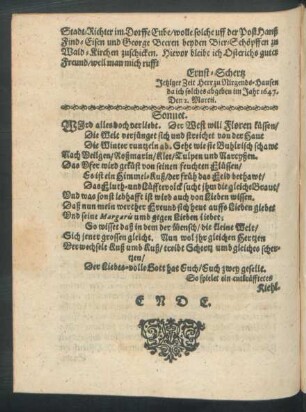 Stadt-Richter im Dorffe Eube/wolle solche uff der Post Hanß
Find-Eisen und George Beeren beyden Bier-Schöpffen zu
Wald-Kirchen zuschicken. Hievor bleibe ich Dsterichs guter
Freund/weil man mich rufft
Ernst-Schertz
Jetziger Zeit Herr zu Nirgends-Hausen
da ich solches abgeben im Jahr 1647.
Den 2. Martii.
Sonnet.
WIrd alles doch verliebt. Der West will Floren küssen/
Die Welt verjünget sich und streichet von der Haut
Die Winter runtzeln ab. Seht wie sie Buhlrisch schawt
Nach Veilgen/Roßmarin/Klee/Tulpen und Narcyssen.
Das Ufer wird geküst von seinen feuchten Flüssen/
So ist ein Himmels-Kuß/der früh das Feld bethawt/
Das Fluth-und Lüffte volck sucht ihm die gleiche Braut/
Und was sonst lebhafft ist wird auch von Lieben wissen.
Daß nun mein werther Freund sich heut auffs Lieben giebet
Und seine Margaris umb gegen Lieben liebet;
So wisset daß in dem der Mensch/die kleine Welt/
Sich jener grossen gleicht. Nun wol ihr gleichen Hertzen
Verwechselt Kuß umb Kuß/treibt Schertz umb gleiches schertzen/
Der Liebes-volle Gott hat Euch/Euch zwey gesellt.
So spielet ein entkräfftetes
Kiehl.
E N D E.